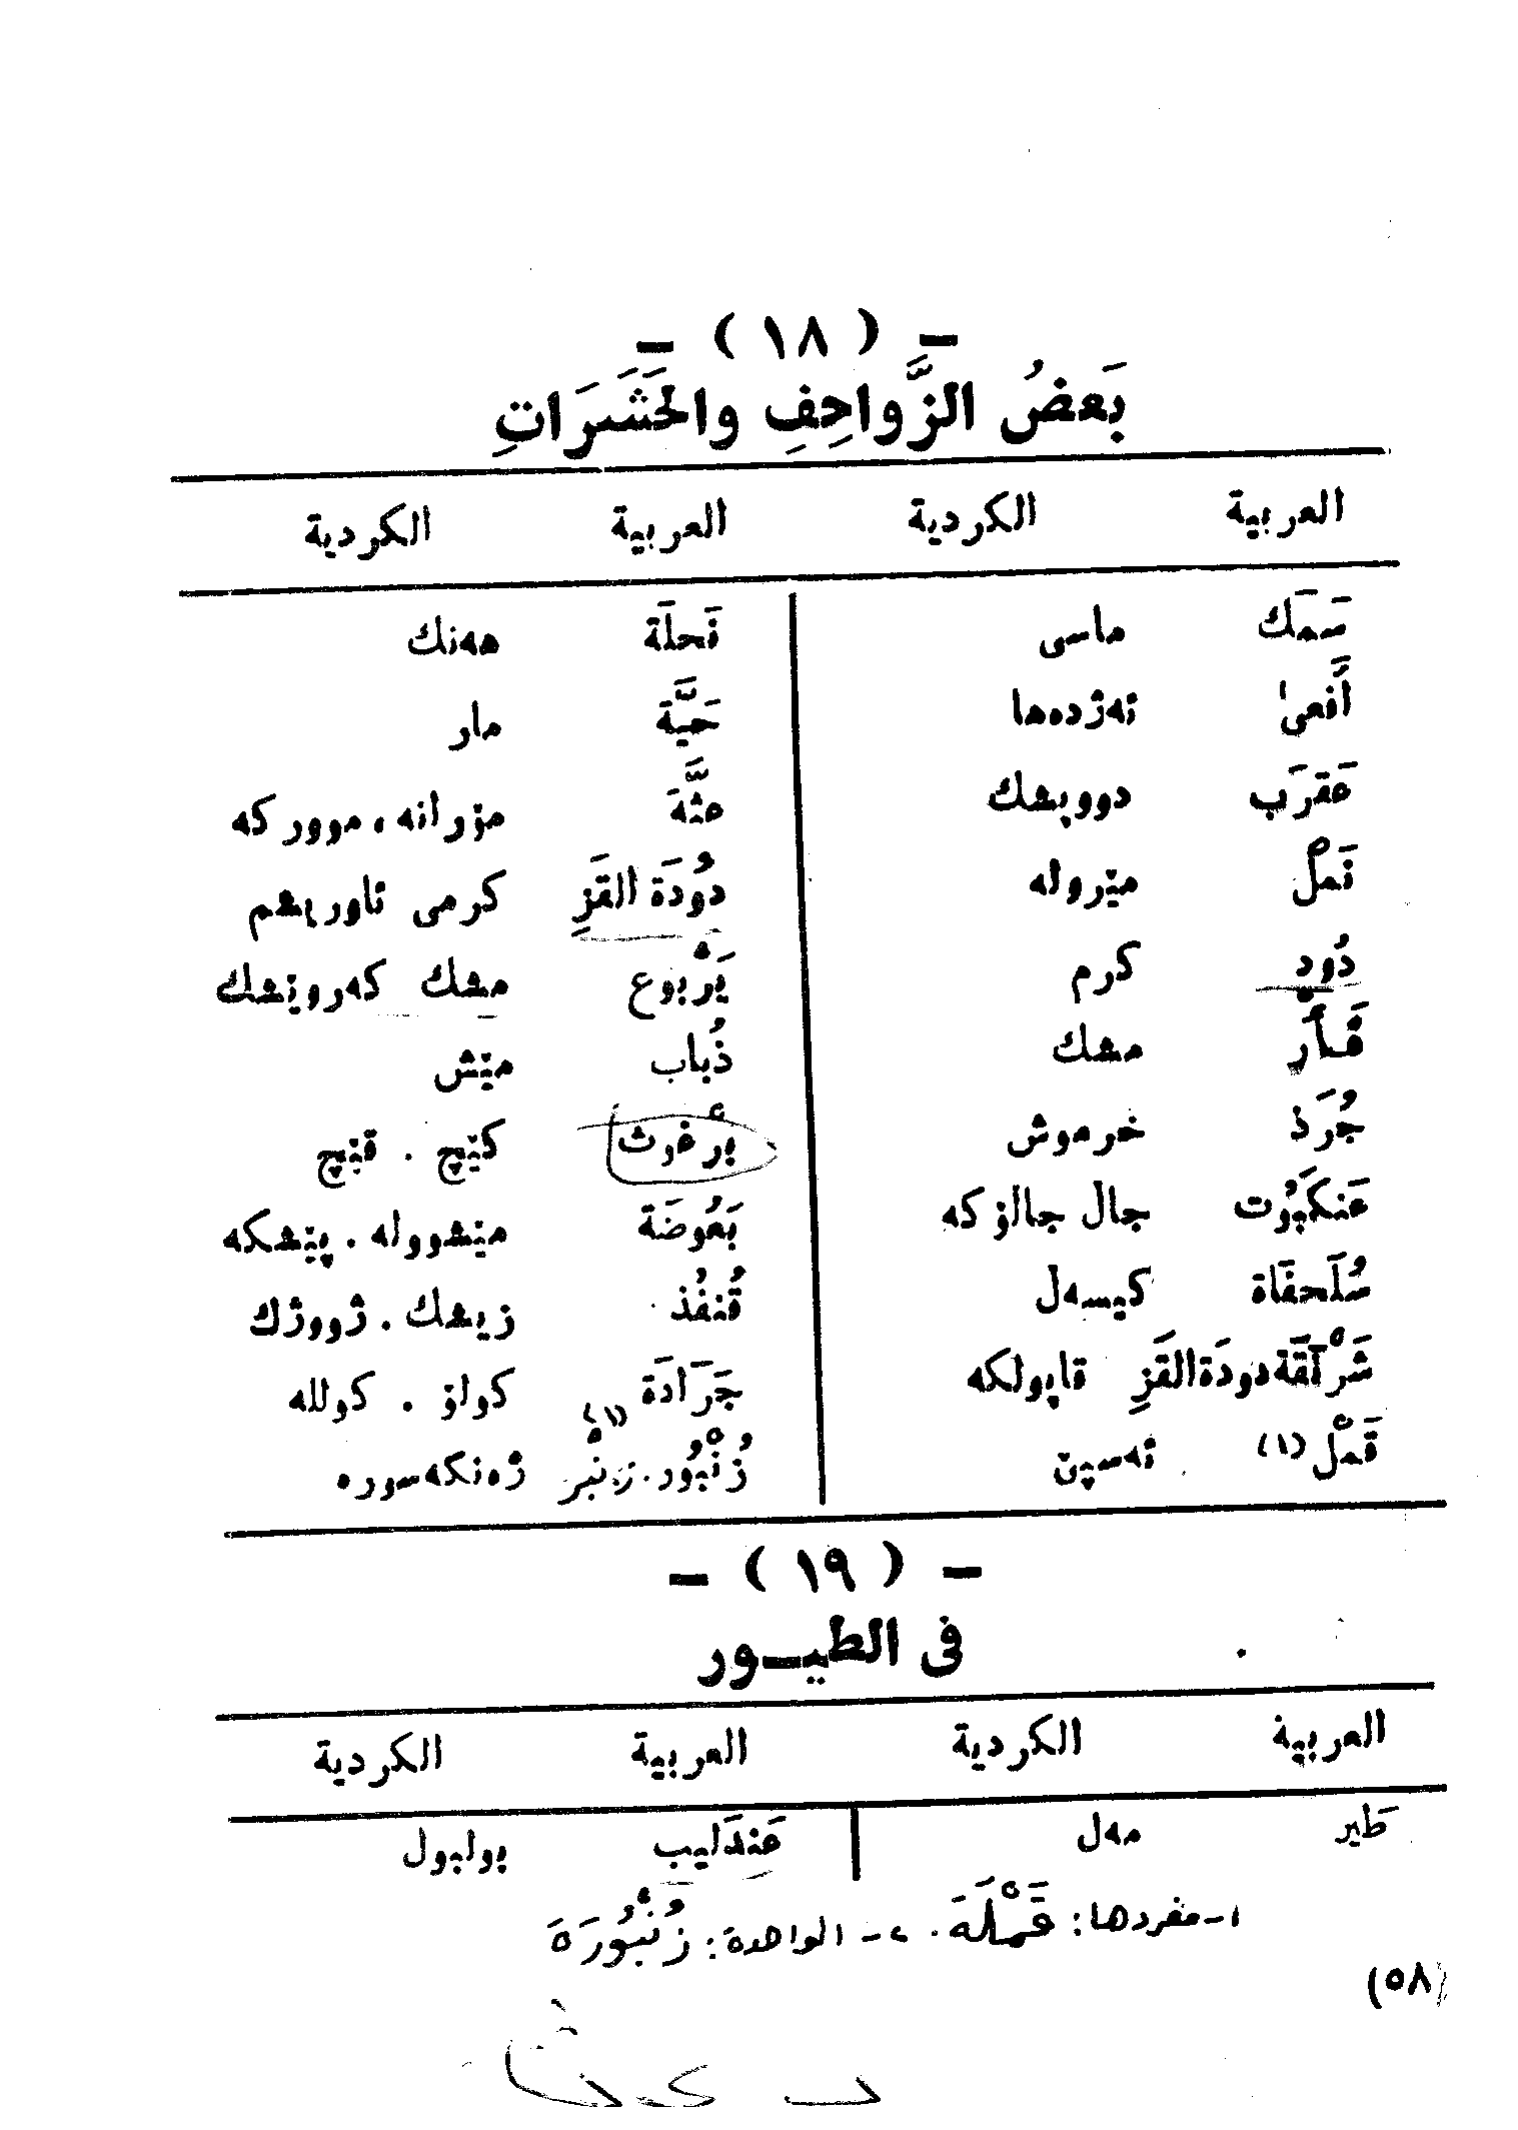 - ( ١٨ ) -
بَعضُ الزَّواحِفِ والحَشَرَاتِ
العربية الكردية العربية الكردية
سَمَك ماسى نَحلَة هەنك
أَفعىٰ ئەژدەها حَيَّة مار
عَقرَب دووپشك عثَّة مۆرانه ، موورکه
نَملْ مێروله دُودَة القَزِ کرمى ئاوريشم
دُود کرم يَرْبوع مشك کەروێشك
فَأرْ مشك ذُباب مێش
جُرَذ خرموش برغوث کێچ . قێچ
عَنكَبُوت جال جالۆکه بَعُوضَة مێشووله . پێشکه
سُلَحفَاة کيسەل قُنفُذ زيشك . ژووژك
شَرْنَقَة دودَة القَزِ قاپولکه جَرَادَة کولۆ . کولله
قَملْ (١) ئەسپێ زُنْبُور . زنبر (٢) ژەنکەسوره
- ( ١٩ ) -
فى الطيـــور
العربية الكردية العربية الكردية
طَير مەل عَندَليب بولبول
١- مفردها : قَمْلَة . ٢- الواحدة : زُنْبُورَة
(٥٨)